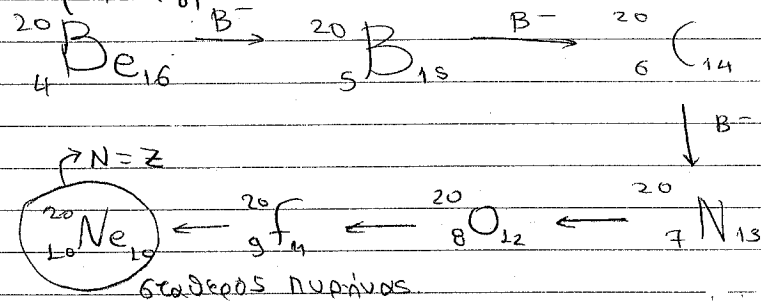 ²⁰₄Be₁₆ —B⁻→ ²⁰₅B₁₅ —B⁻→ ²⁰₆C₁₄
↓ B⁻
→ N = Z
²⁰₁₀Ne₁₀ ← ²⁰₉f₁₁ ← ²⁰₈O₁₂ ← ²⁰₇N₁₃
σταθερός πυρήνας